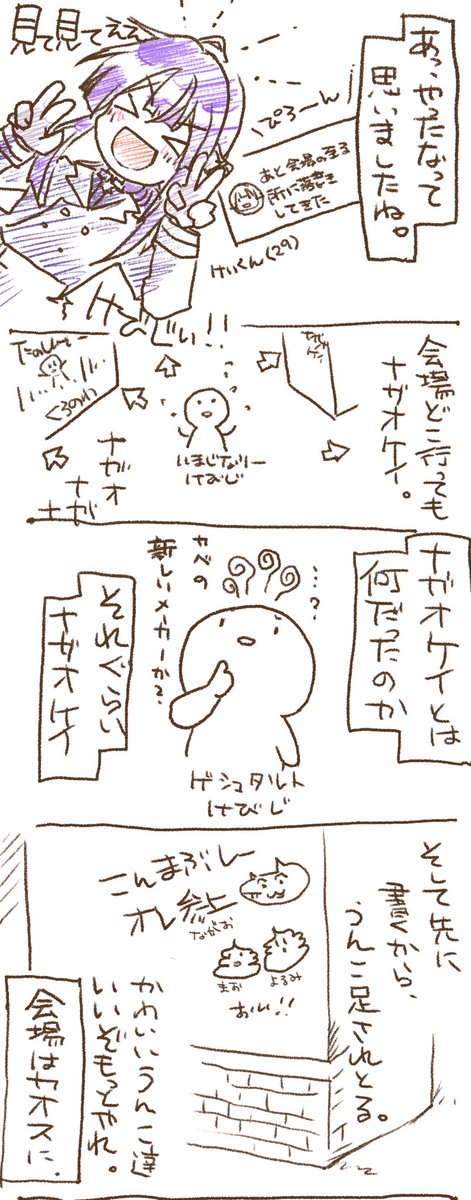 あっ、やったなって
思いましたね。
見て見てええ
ぴろーん
あと会場の至る
所に落書き
してきた
けいくん(29)
会場どこ行っても
ナガオケイ。
たのしいー
くるのか
いまじなりー
けびじ
ナガオ
ナガ
ナガオケイとは
何だったのか
…?
カベの
新しいメーカーか?
それぐらい
ナガオケイ
ゲシュタルト
けびじ
そして先に
書くから、
うんこ足されとる。
こんまぶしー
オレ参上
ながお
まお
よるみ
おい!!
かわいいうんこ達
いいぞもっとやれ。
会場はカオスに。